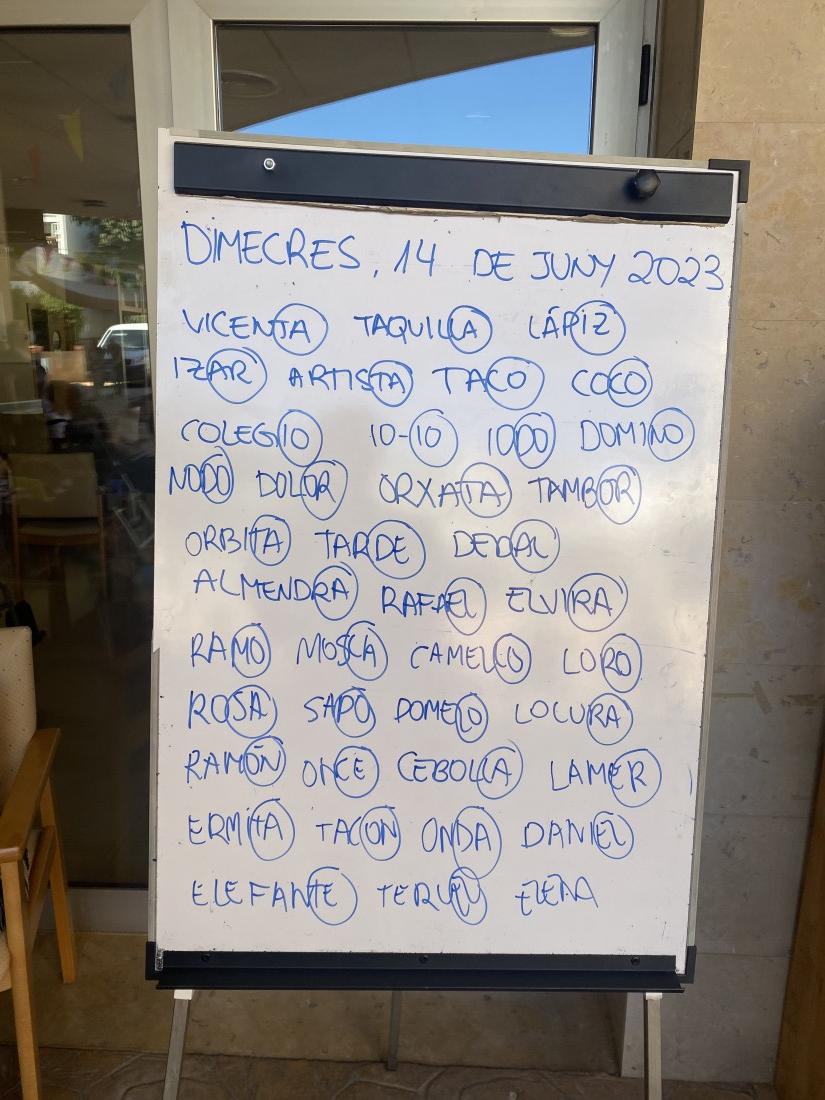 DIMECRES, 14 DE JUNY 2023
VICENTA TAQUILLA LÁPIZ
IZAR ARTISTA TACO COCO
COLEGIO 10-10 IODO DOMINO
NODO DOLOR ORXATA TAMBOR
ORBITA TARDE DEDAL
ALMENDRA RAFAEL ELVIRA
RAMO MOSCA CAMELLO LORO
ROSA SAPO DOMELO LOCURA
RAMÓN ONCE CEBOLLA LAMER
ERMITA TACON ONDA DANIEL
ELEFANTE